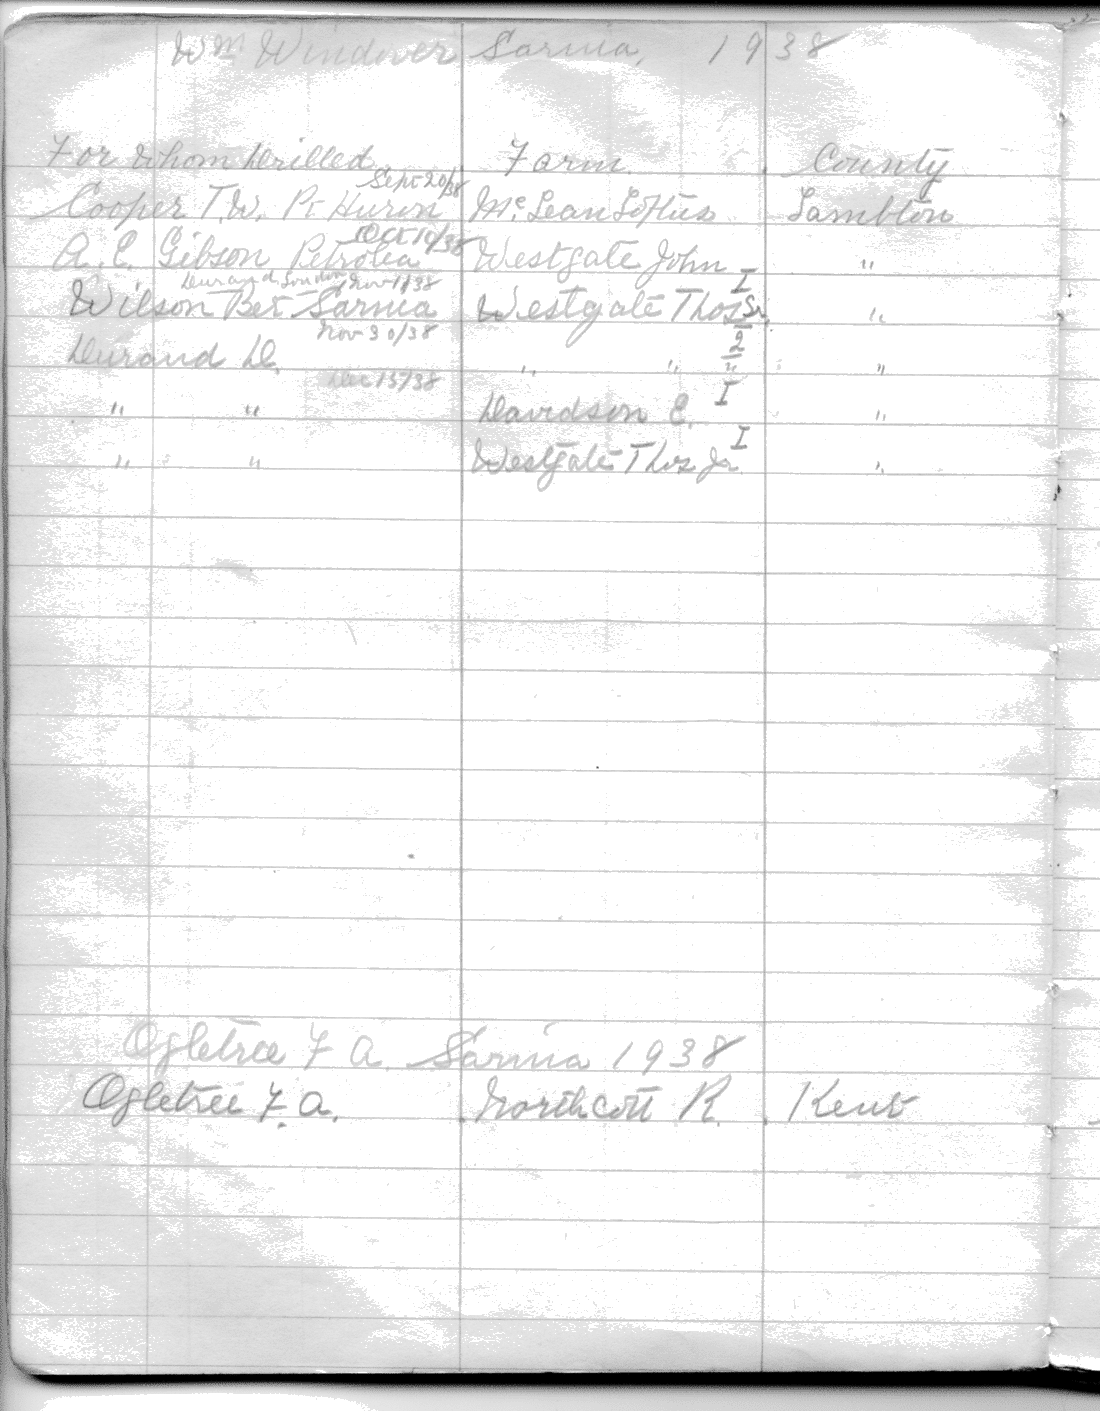 Wm Windover Sarnia, 1938
For Whom Drilled Farm. County
Sept 20/38
Cooper T.W. Pt Huron McLean Loftus Lambton
Oct 10/38
A. E. Gibson Petrolea Westgate John "
Durand London Nov 1/38 I
Wilson Bet Sarnia Westgate Thos Sr. "
Nov 30/38 2
Durand D. " " " "
Dec 15/38
" " Davidson E. I "
" " Westgate Thos Jr. I "
Ogletree F A. Sarnia 1938
Ogletree F. A. Northcott R. Kent